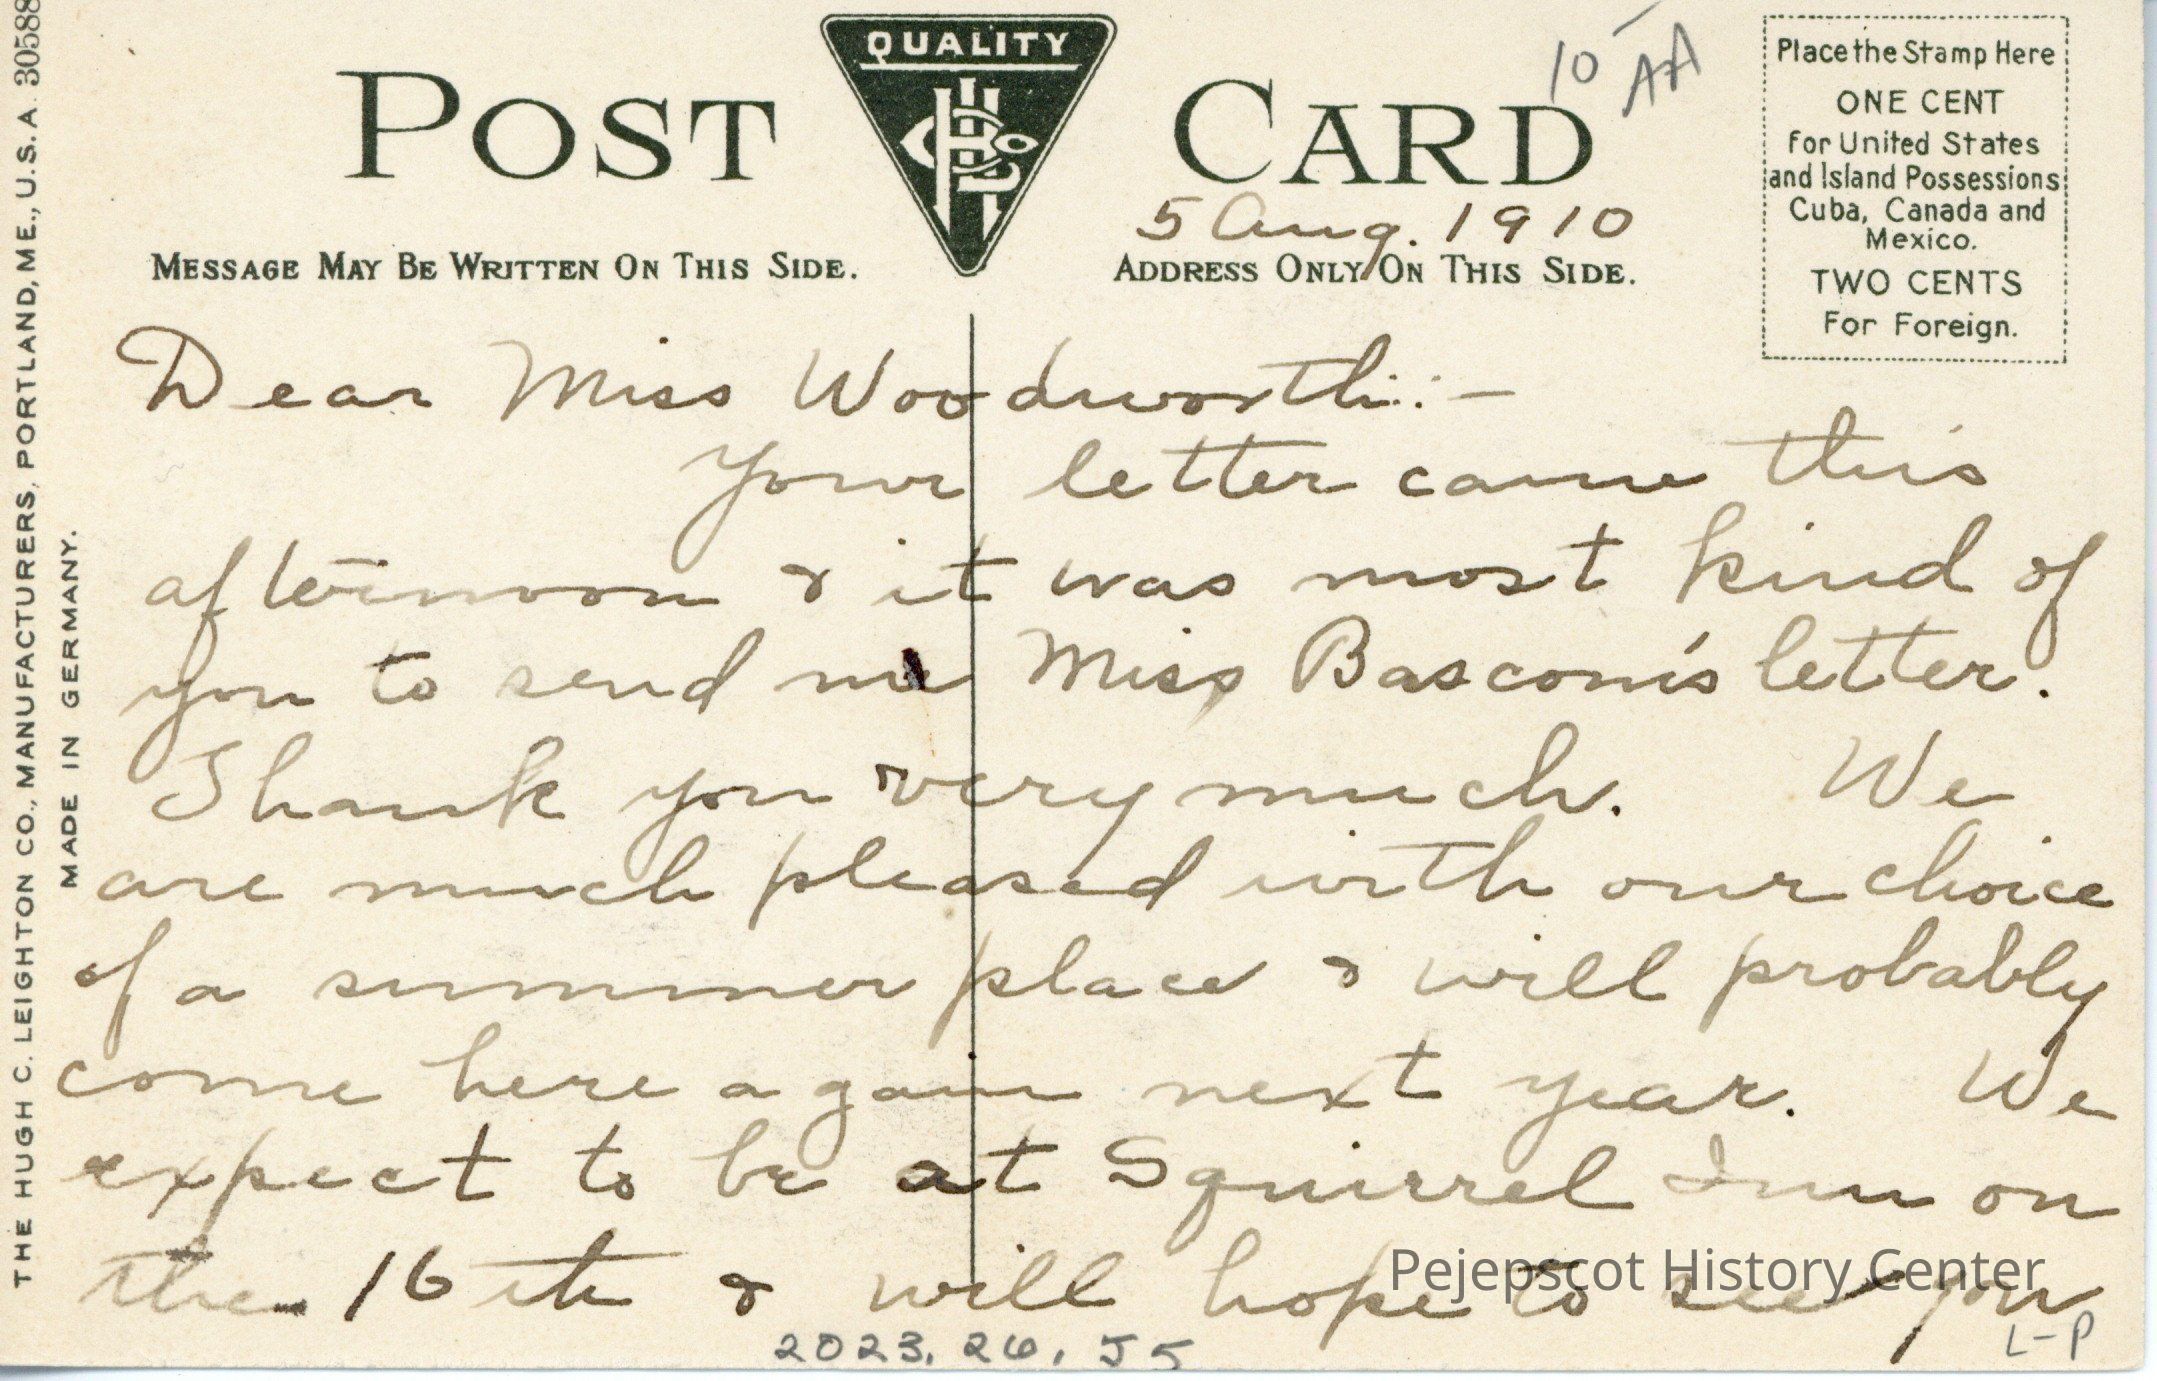 QUALITY
POST CARD
HCL Co
10
AA
5 Aug. 1910
MESSAGE MAY BE WRITTEN ON THIS SIDE.
ADDRESS ONLY ON THIS SIDE.
Place the Stamp Here
ONE CENT
For United States
and Island Possessions
Cuba, Canada and
Mexico.
TWO CENTS
For Foreign.
THE HUGH C. LEIGHTON CO., MANUFACTURERS, PORTLAND, ME., U.S.A. 30588
MADE IN GERMANY.
Dear Miss Woodworth:-
Your letter came this
afternoon & it was most kind of
you to send me Miss Bascom's letter.
Thank you very much. We
are much pleased with our choice
of a summer place & will probably
come here again next year. We
expect to be at Squirrel Inn on
the 16th & will hope to see you
Pejepscot History Center
2023.26.55
L-P